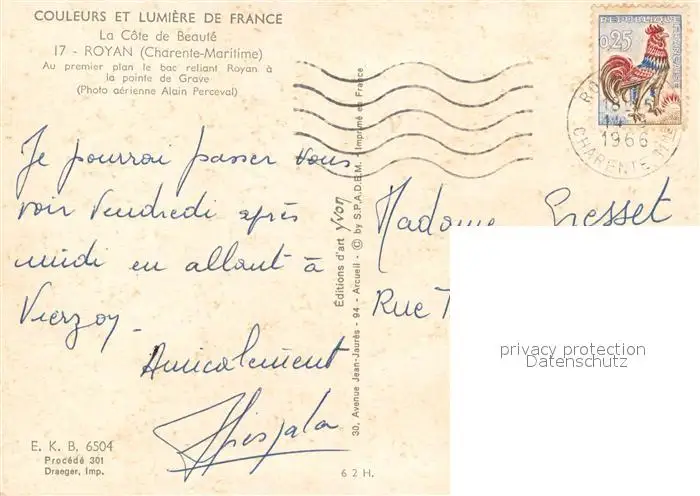 COULEURS ET LUMIÈRE DE FRANCE
La Côte de Beauté
17 - ROYAN (Charente-Maritime)
Au premier plan le bac reliant Royan à
la pointe de Grave
(Photo aérienne Alain Perceval)
Je pourrai passer vous
voir Vendredi après
midi en allant à
Vierzon.
Amicalement
E. K. B. 6504
Procédé 301
Draeger, Imp.
6 2 H.
30, Avenue Jean-Jaurès - 94 - Arcueil - © by S.P.A.D.E.M. - Imprimé en France
Éditions d'art yvon
REPUBLIQUE
FRANÇAISE
0,25
18
14
1966
CHARENTE MME
Madame Gresset
Rue
privacy protection
Datenschutz